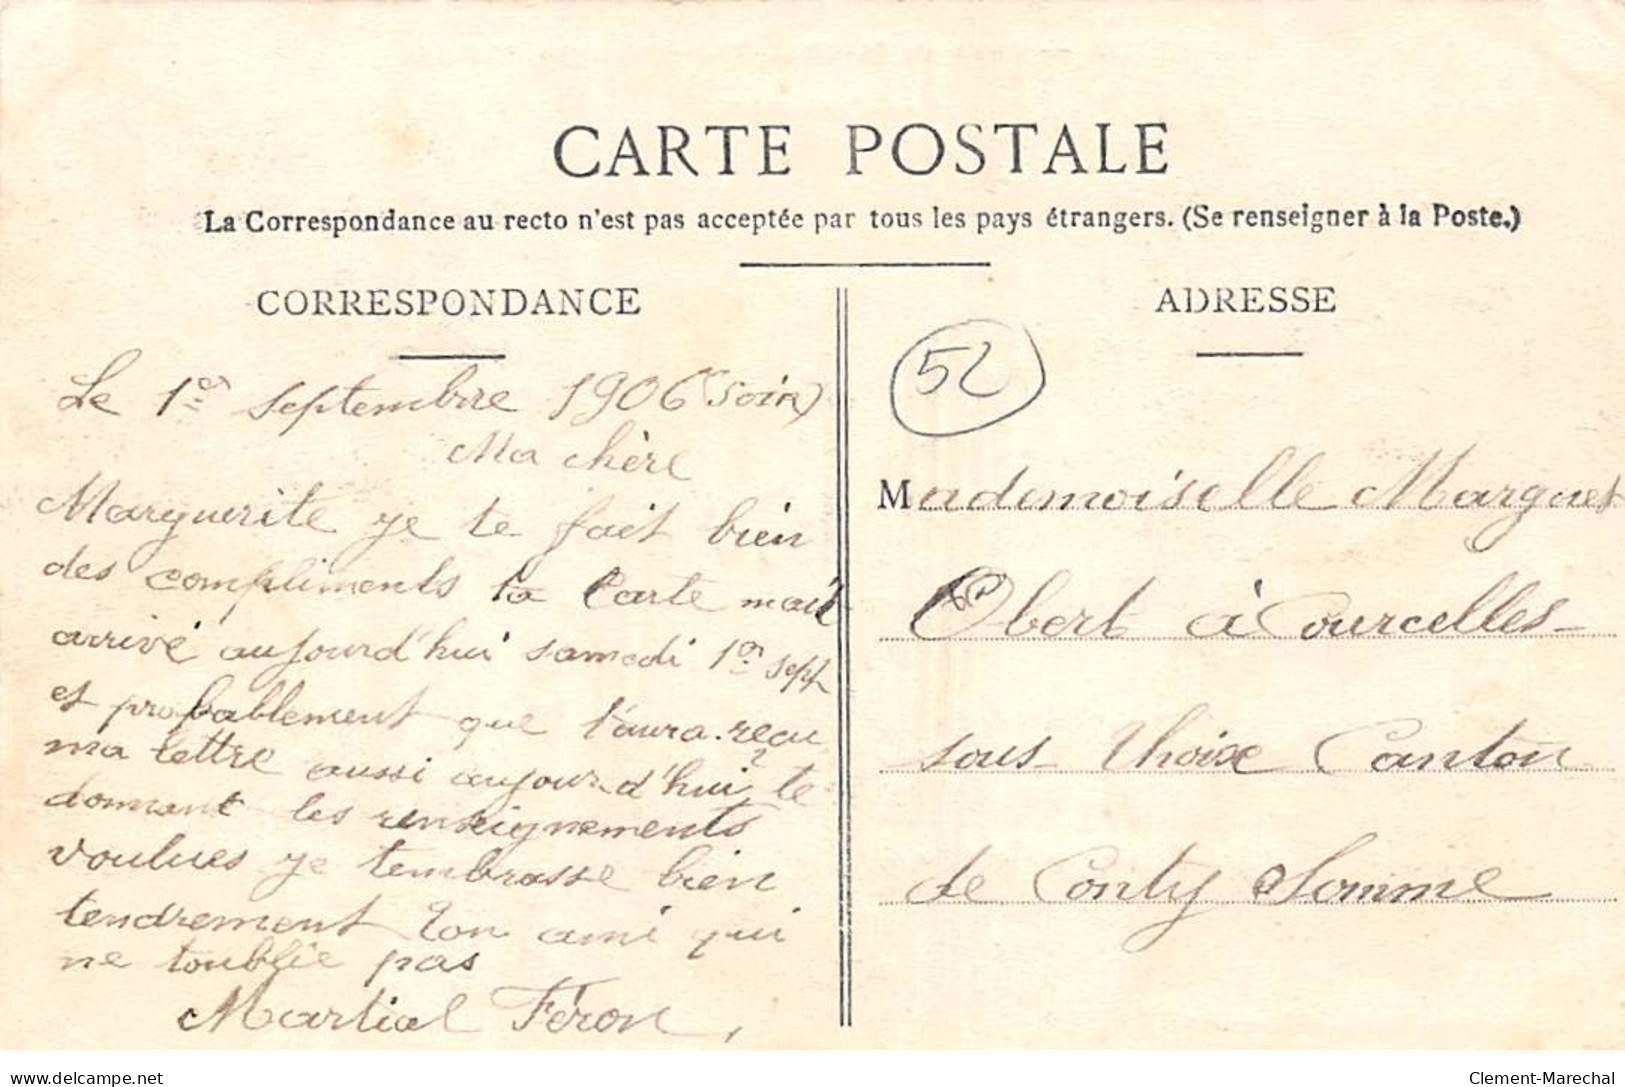 CARTE POSTALE
La Correspondance au recto n'est pas acceptée par tous les pays étrangers. (Se renseigner à la Poste.)
CORRESPONDANCE
Le 1er septembre 1906 (soir)
Ma chère
Marguerite je te fait bien
des compliments ta Carte mait
arrivé aujourd'hui samedi 1er sept
et probablement que t'aura reçu
ma lettre aussi aujourd'hui te
donnant les renseignements
voulues je tembrasse bien
tendrement ton ami qui
ne toublie pas
Martial Féron,
ADRESSE
52
Mademoiselle Marguet
Obert à Courcelles
sous Thoix Canton
de Conty Somme
delcampe.net
Clement-Marechal